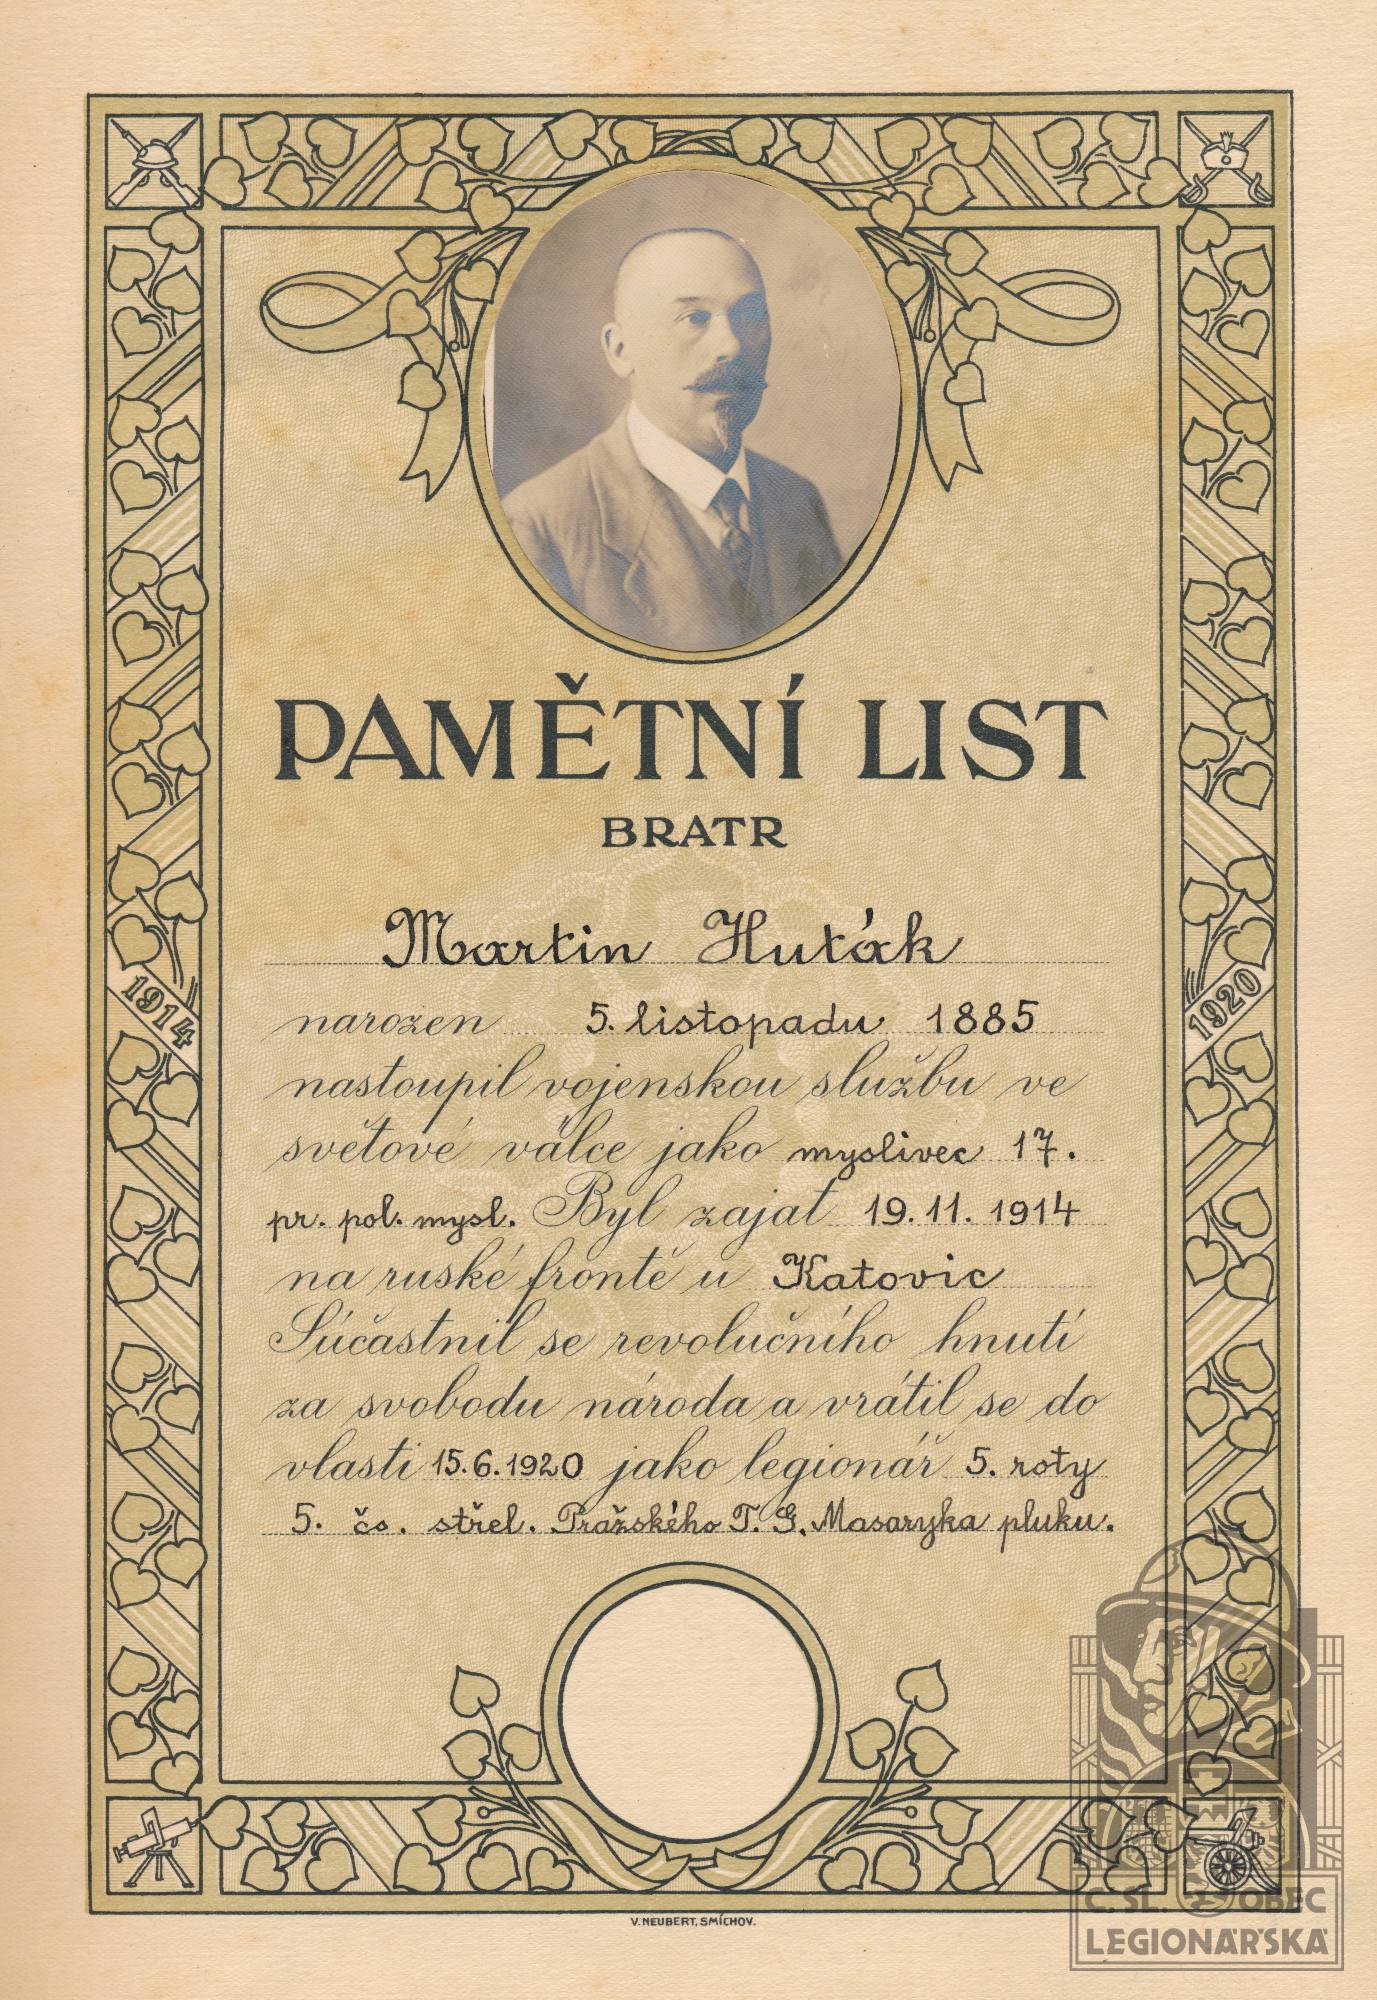 PAMĚTNÍ LIST
BRATR
Martin Huťák
narozen 5. listopadu 1885
nastoupil vojenskou službu ve
světové válce jako myslivec 17.
pr. pol. mysl. Byl zajat 19. 11. 1914
na ruské frontě u Katovic
Súčastnil se revolučního hnutí
za svobodu národa a vrátil se do
vlasti 15. 6. 1920 jako legionář 5. roty
5. čs. střel. Pražského T. G. Masaryka pluku.
1914
1920
V. NEUBERT, SMÍCHOV.
Č. SL. OBEC
LEGIONÁŘSKÁ